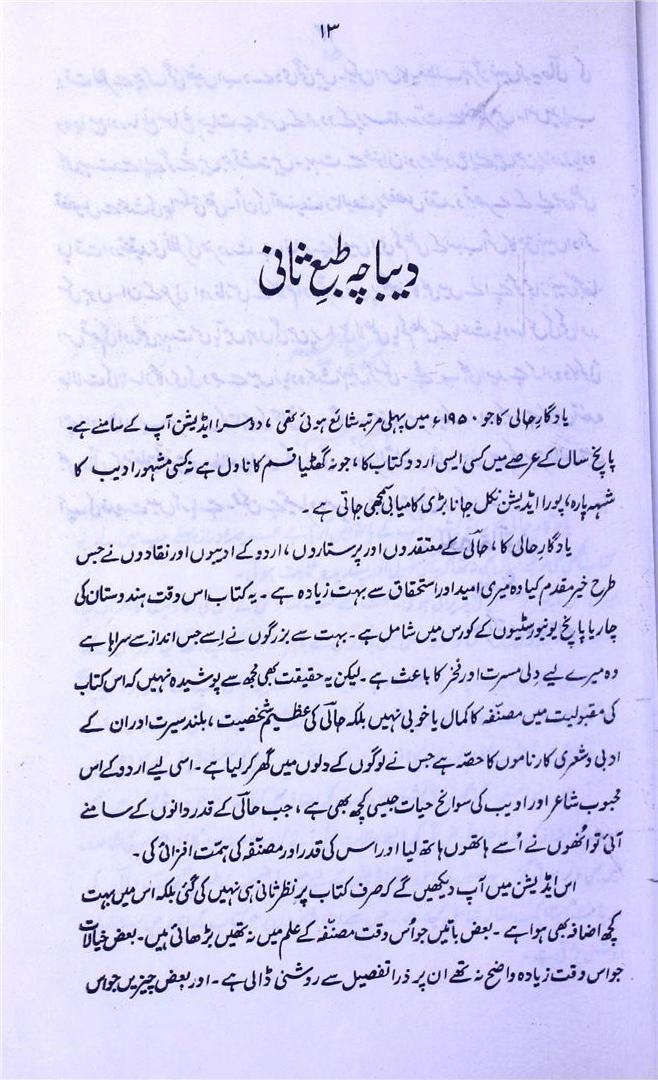 ۱۳
دیباچہ طبعِ ثانی
یادگارِ حالی کا جو ۱۹۵۰ء میں پہلی مرتبہ شائع ہوئی تھی، دوسرا ایڈیشن آپ کے سامنے ہے۔
پانچ سال کے عرصے میں کسی ایسی اردو کتاب کا، جو نہ گھٹیا قسم کا ناول ہے نہ کسی مشہور ادیب کا
شہہ پارہ، پورا ایڈیشن نکل جانا بڑی کامیابی سمجھی جاتی ہے۔
یادگارِ حالی کا، حالی کے معتقدوں اور پرستاروں، اردو کے ادیبوں اور نقادوں نے جس
طرح خیر مقدم کیا وہ میری امید اور استحقاق سے بہت زیادہ ہے۔ یہ کتاب اس وقت ہندوستان کی
چار یا پانچ یونیورسٹیوں کے کورس میں شامل ہے۔ بہت سے بزرگوں نے اِسے جس انداز سے سراہا ہے
وہ میرے لیے دِلی مسرت اور فخر کا باعث ہے۔ لیکن یہ حقیقت بھی مجھ سے پوشیدہ نہیں کہ اس کتاب
کی مقبولیت میں مصنّفہ کا کمال یا خوبی نہیں بلکہ حالی کی عظیم شخصیت، بلند سیرت اور ان کے
ادبی و شعری کارناموں کا حصّہ ہے جس نے لوگوں کے دلوں میں گھر کر لیا ہے۔ اسی لیے اردو کے اس
محبوب شاعر اور ادیب کی سوانح حیات جیسی کچھ بھی ہے، جب حالی کے قدر دانوں کے سامنے
آئی تو انھوں نے اُسے ہاتھوں ہاتھ لیا اور اس کی قدر اور مصنّفہ کی ہمّت افزائی کی۔
اس ایڈیشن میں آپ دیکھیں گے کہ صرف کتاب پر نظر ثانی ہی نہیں کی گئی بلکہ اس میں بہت
کچھ اضافہ بھی ہوا ہے۔ بعض باتیں جو اُس وقت مصنّفہ کے علم میں نہ تھیں بڑھائی ہیں۔ بعض خیالات
جو اس وقت زیادہ واضح نہ تھے ان پر ذرا تفصیل سے روشنی ڈالی ہے۔ اور بعض چیزیں جو اس